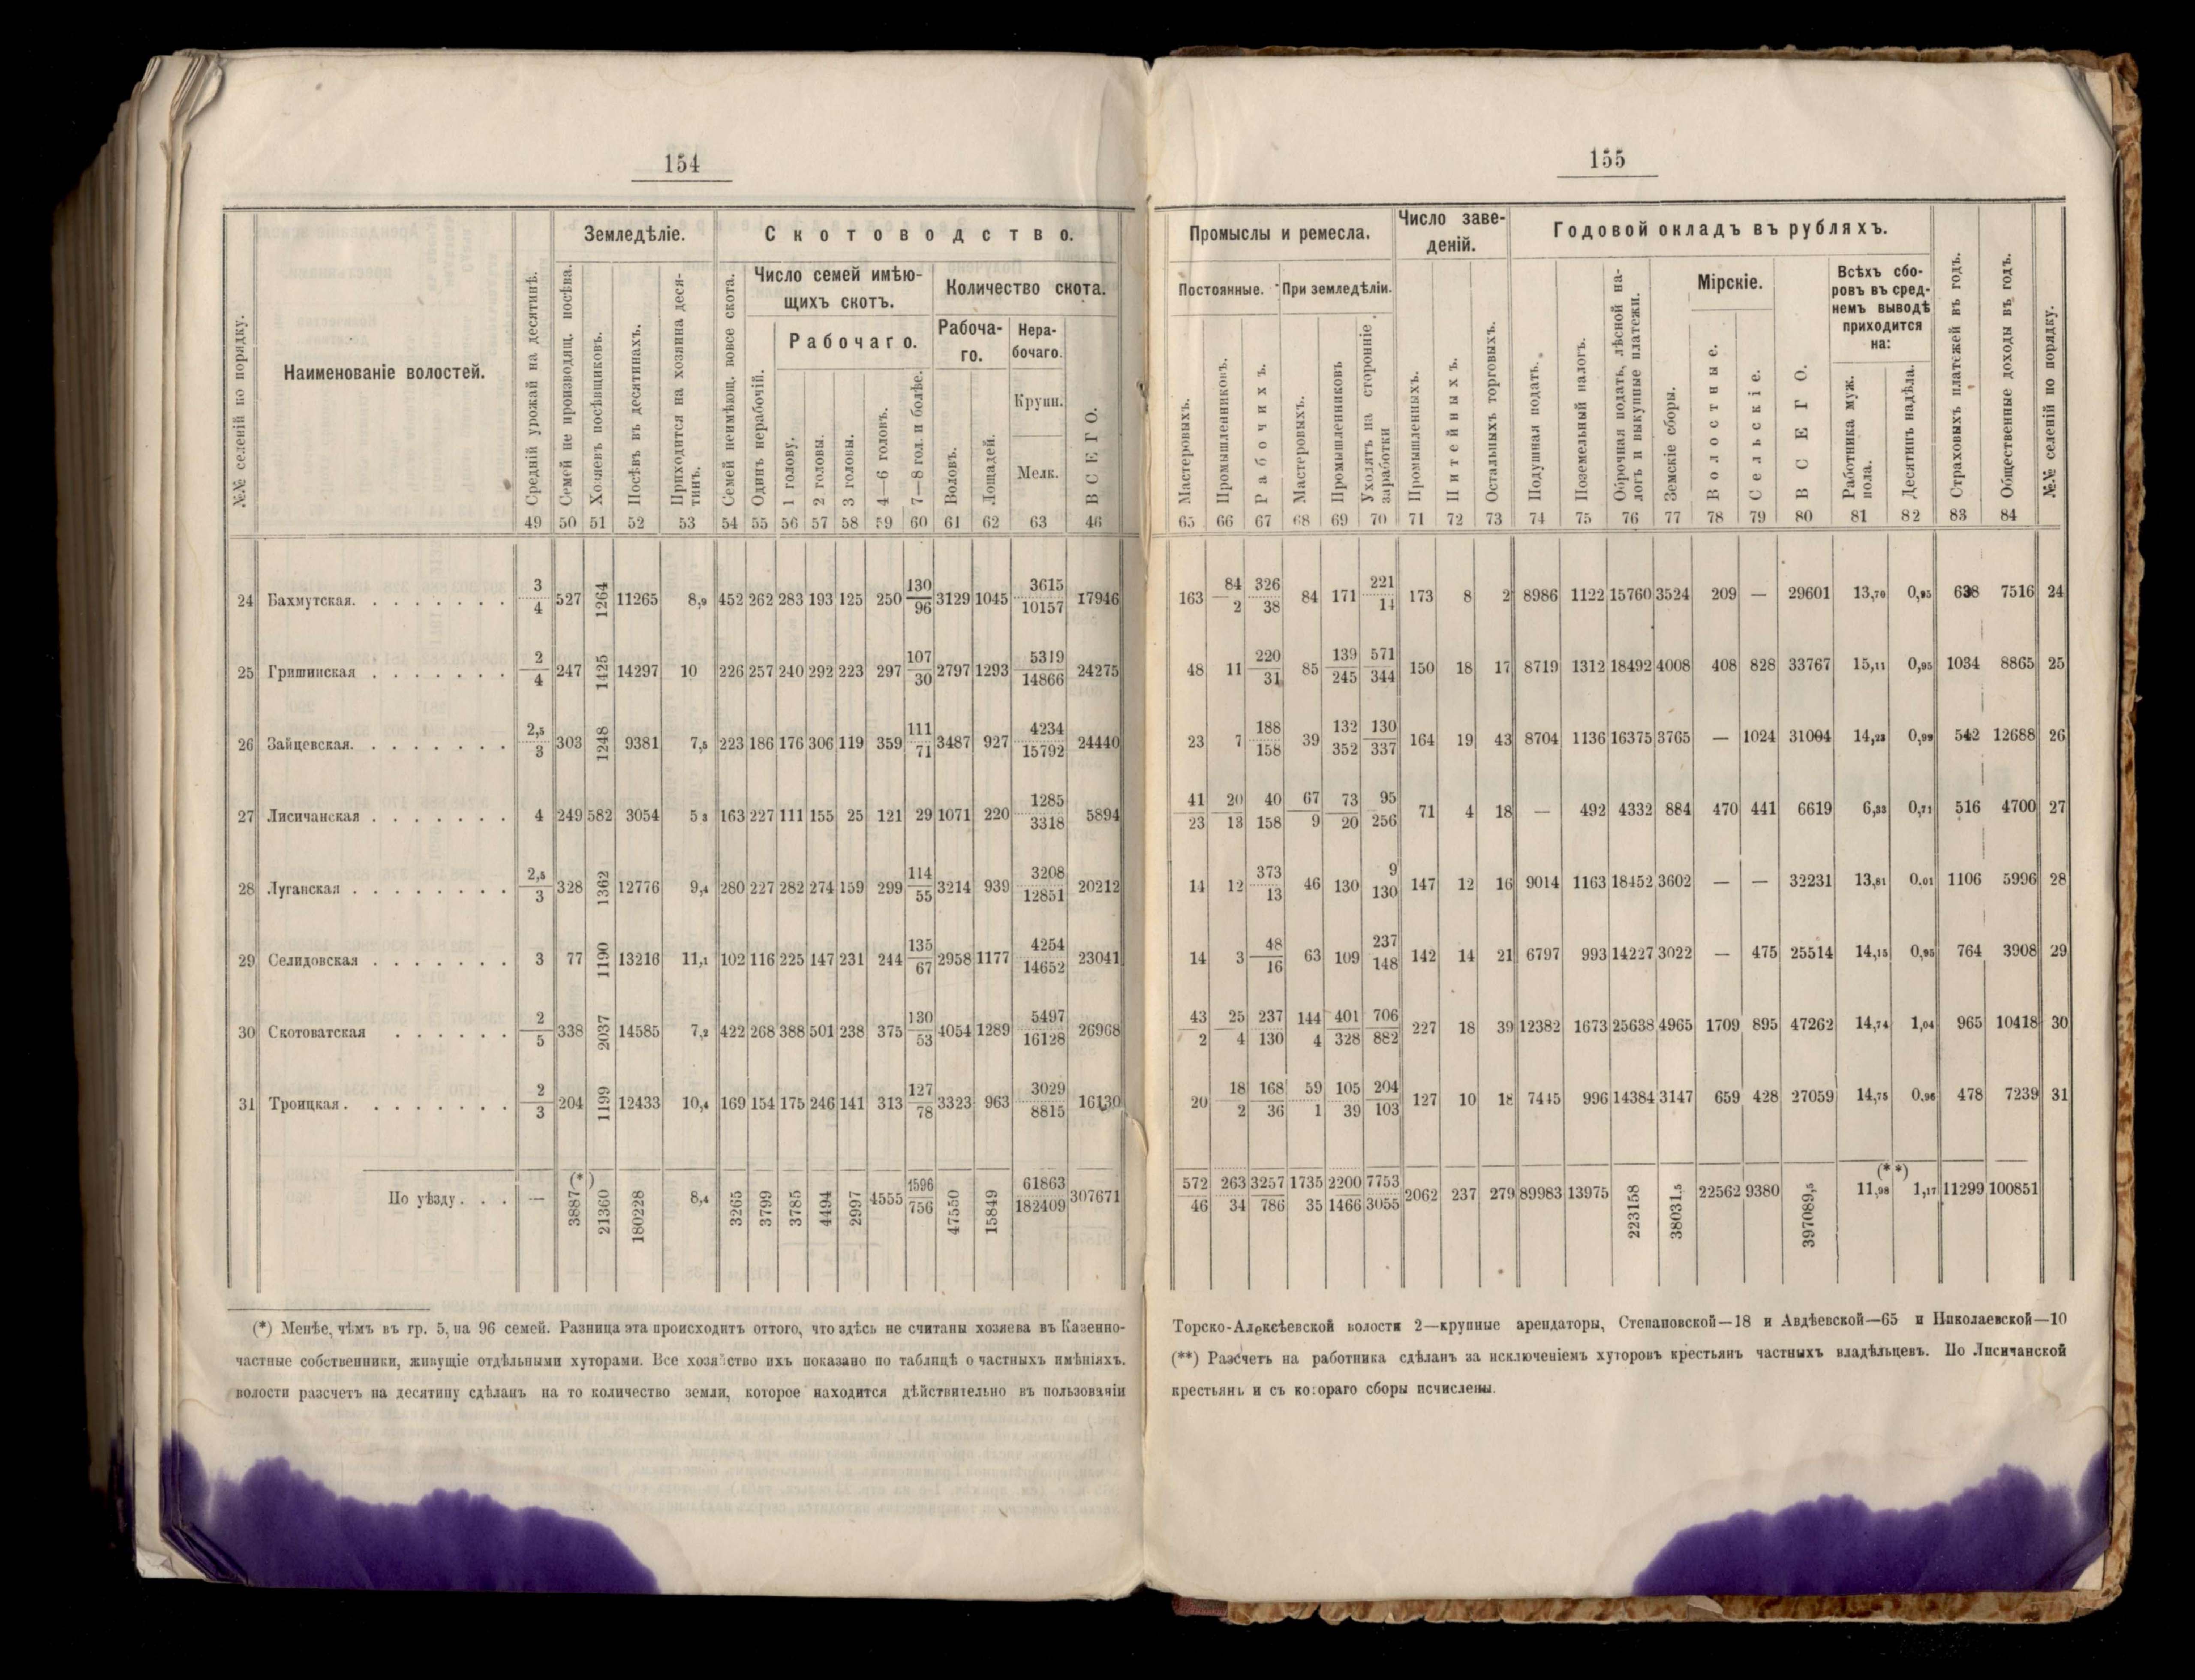 154
Земледѣліе. Скотоводство.
Число семей имѣю-
щихъ скотъ.
Количество скота.
Рабочаго.
Рабоча-
го.
Нера-
бочаго.
Крупн.
Мелк.
№№ селеній по порядку.
Наименованіе волостей.
Средній урожай на десятинѣ.
Семей не производящ. посѣва.
Хозяевъ посѣвщиковъ.
Посѣвъ въ десятинахъ.
Приходится на хозяина деся-
тинъ.
Семей неимѣющ. вовсе скота.
Одинъ нерабочій.
1 голову.
2 головы.
3 головы.
4—6 головъ.
7—8 гол. и болѣе.
Воловъ.
Лошадей.
ВСЕГО.
49 50 51 52 53 54 55 56 57 58 59 60 61 62 63 46
24 Бахмутская. 3/4 527 1264 11265 8,9 452 262 283 193 125 250 130/96 3129 1045 3615/10157 17946
25 Гришинская 2/4 247 1425 14297 10 226 257 240 292 223 297 107/30 2797 1293 5319/14866 24275
26 Зайцевская. 2,5/3 303 1248 9381 7,5 223 186 176 306 119 359 111/71 3487 927 4234/15792 24440
27 Лисичанская 4 249 582 3054 5 3 163 227 111 155 25 121 29 1071 220 1285/3318 5894
28 Луганская 2,5/3 328 1362 12776 9,4 280 227 282 274 159 299 114/55 3214 939 3208/12851 20212
29 Селидовская 3 77 1190 13216 11,1 102 116 225 147 231 244 135/67 2958 1177 4254/14652 23041
30 Скотоватская 2/5 338 2037 14585 7,2 422 268 388 501 238 375 130/53 4054 1289 5497/16128 26968
31 Троицкая. 2/3 204 1199 12433 10,4 169 154 175 246 141 313 127/78 3323 963 3029/8815 16130
По уѣзду. . . — 3887(*) 21360 180228 8,4 3265 3799 3785 4494 2997 4555 1596/756 47550 15849 61863/182409 307671
(*) Менѣе, чѣмъ въ гр. 5, на 96 семей. Разница эта происходитъ оттого, что здѣсь не считаны хозяева въ Казенно-
частные собственники, живущіе отдѣльными хуторами. Все хозяйство ихъ показано по таблицѣ о частныхъ имѣніяхъ.
волости разсчетъ на десятину сдѣланъ на то количество земли, которое находится дѣйствительно въ пользованіи
155
Промыслы и ремесла.
Число заве-
деній.
Годовой окладъ въ рубляхъ.
Постоянные. При земледѣліи.
Мірскіе.
Всѣхъ сбо-
ровъ въ сред-
немъ выводѣ
приходится
на:
Мастеровыхъ.
Промышленниковъ.
Рабочихъ.
Мастеровыхъ.
Промышленниковъ
Уходятъ на сторонніе
заработки
Промышленныхъ.
Питейныхъ.
Остальныхъ торговыхъ.
Подушная подать.
Поземельный налогъ.
Оброчная подать, лѣсной на-
логъ и выкупные платежи.
Земскіе сборы.
Волостные.
Сельскіе.
ВСЕГО.
Работника муж.
пола.
Десятинъ надѣла.
Страховыхъ платежей въ годъ.
Общественные доходы въ годъ.
№№ селеній по порядку.
65 66 67 68 69 70 71 72 73 74 75 76 77 78 79 80 81 82 83 84
163 84/2 326/38 84 171 221/14 173 8 2 8986 1122 15760 3524 209 — 29601 13,70 0,95 638 7516 24
48 11 220/31 85 139/245 571/344 150 18 17 8719 1312 18492 4008 408 828 33767 15,11 0,95 1034 8865 25
23 7 188/158 39 132/352 130/337 164 19 43 8704 1136 16375 3765 — 1024 31004 14,23 0,99 542 12688 26
41/23 20/13 40/158 67/9 73/20 95/256 71 4 18 — 492 4332 884 470 441 6619 6,33 0,71 516 4700 27
14 12 373/13 46 130 9/130 147 12 16 9014 1163 18452 3602 — — 32231 13,81 0,01 1106 5996 28
14 3 48/16 63 109 237/148 142 14 21 6797 993 14227 3022 — 475 25514 14,15 0,95 764 3908 29
43/2 25/4 237/130 144/4 401/328 706/882 227 18 39 12382 1673 25638 4965 1709 895 47262 14,74 1,04 965 10418 30
20 18/2 168/36 59/1 105/39 204/103 127 10 18 7445 996 14384 3147 659 428 27059 14,75 0,96 478 7239 31
572/46 263/34 3257/786 1735/35 2200/1466 7753/3055 2062 237 279 89983 13975 223158 38031,5 22562 9380 397089,5 (**) 11,98 1,17 11299 100851
Торско-Алексѣевской волости 2—крупные арендаторы, Степановской—18 и Авдѣевской—65 и Николаевской—10
(**) Разсчетъ на работника сдѣланъ за исключеніемъ хуторовъ крестьянъ частныхъ владѣльцевъ. По Лисичанской
крестьянъ и съ котораго сборы исчислены.